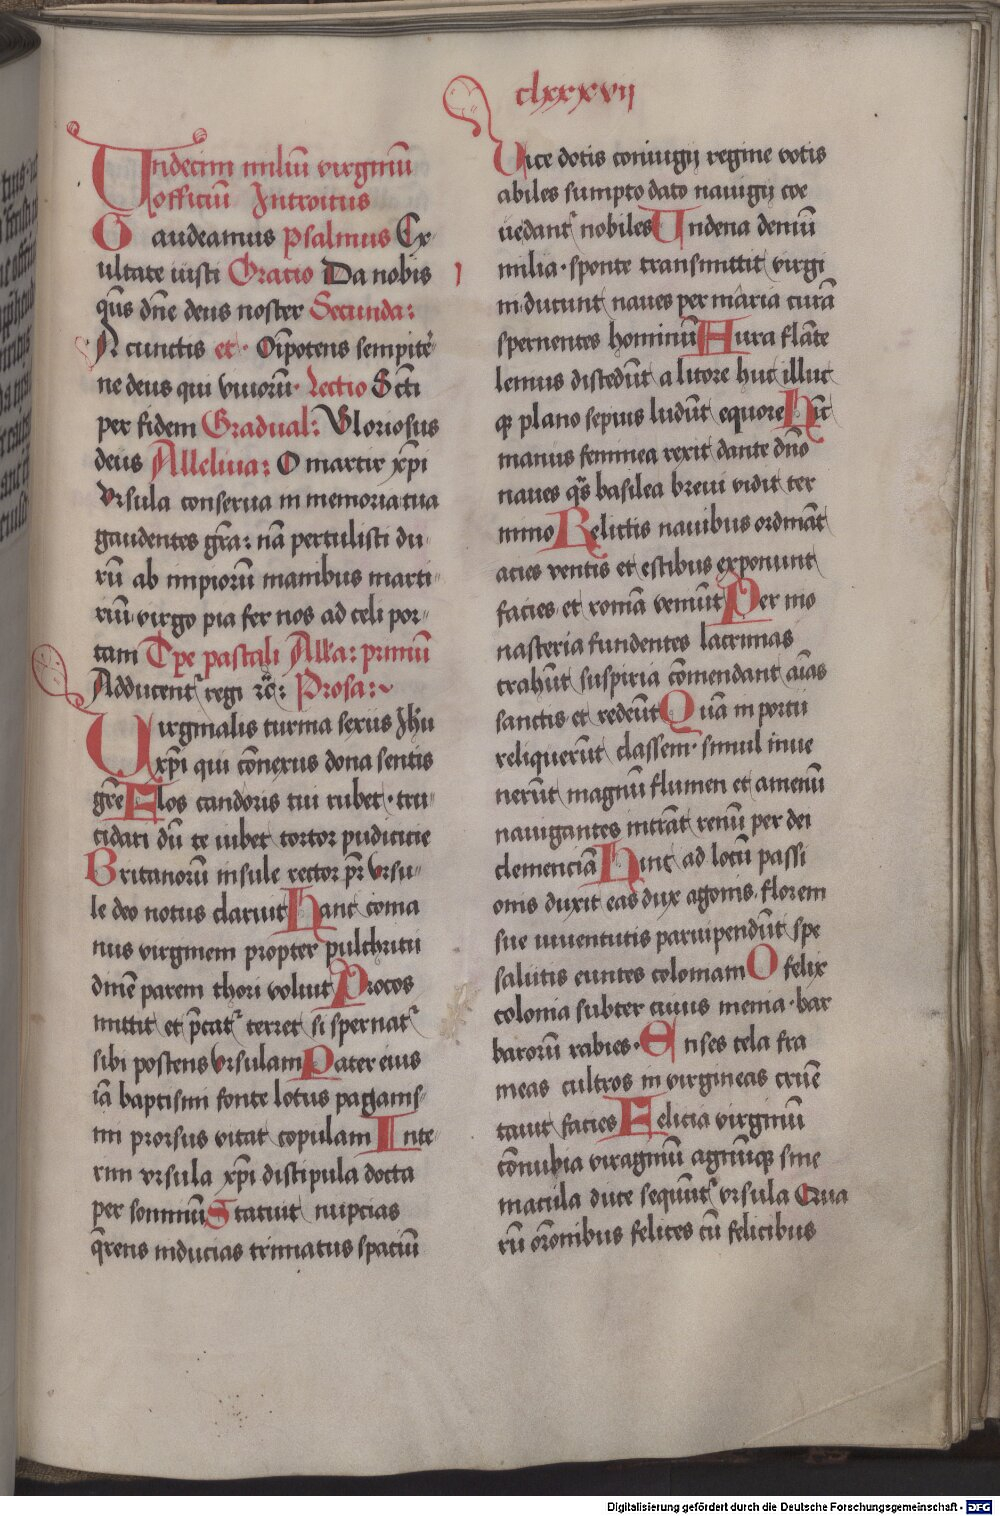 clxxxvij
Undecim miliū virginū
officiū Introitus
Gaudeamus psalmus Ex
ultate iusti Oracio Da nobis
qs̄ dn̄e deus noster Secunda:
A cunctis et · Oīpotens sempiter
ne deus qui viuorū· Lectio Scti
per fidem Gradual: Gloriosus
deus Alleluia: O martir xp̄i
vrsula conserua in memoria tua
gaudentes grā: nā pertulisti du
rū ab impiorū manibus marti
riū· virgo pia fer nos ad celi por
tam Tp̄e pascali Alla: primū
Adducent᷑ regi rē: Prosa:
Virginalis turma sexus Jhu
xp̄i qui cōnexus dona sentis
grē Flos candoris tui rubet· tru
cidari dū te iubet tortor pudicicie
Britanorū insule rector pr̄ vrsu
le deo notus claruit Hanc coma
nus virginem propter pulchritu
dinē parem thori voluit Procos
mittit et p̄cat᷑ terret si spernat᷑
sibi poscens vrsulam Pater eius
iā baptismi fonte lotus paganis
mi prorsus vitat copulam Inte
rim vrsula xp̄i discipula docta
per sommū Statuit nupcias
q̄rens inducias trinatus spaciū
Vice dotis coniugij regine votis
abiles sumpto dato nauigij coe
uedant᷑ nobiles Undena demū
milia· sponte transmittit virgi
ni· ducunt naues per maria curā
spernentes hominū Aura flāte
lemus distēdūt a litore huc illuc
qȝ plano sepius ludūt equore Hāc
manus feminea rexit dante dn̄o
naues qs̄ basilea breui vidit ter
mino Relictis nauibus ordināt
acies ventis et estibus exponunt
facies· et romā veniūt Per mo
nasteria fundentes lacrimas
trahūt suspiria cōmendant aīas
sanctis et redeūt Quā in portu
reliquerūt classem· simul inue
nerūt magnū flumen et amenū
nauigantes intrāt renū per dei
clemenciā Hinc ad locū passi
onis duxit eas dux agonis· florem
sue iuuentutis paruipendūt spe
salutis euntes coloniam O felix
colonia subter cuius menia· bar
barorū rabies· Enses tela fra
meas cultros in virgineas cruē
tauit facies Felicia virginū
cōnubia viraginū agnūqȝ sine
macula duce sequūt᷑ vrsula Qua
rū orōnibus felices cū felicibus
Digitalisierung gefördert durch die Deutsche Forschungsgemeinschaft - DFG